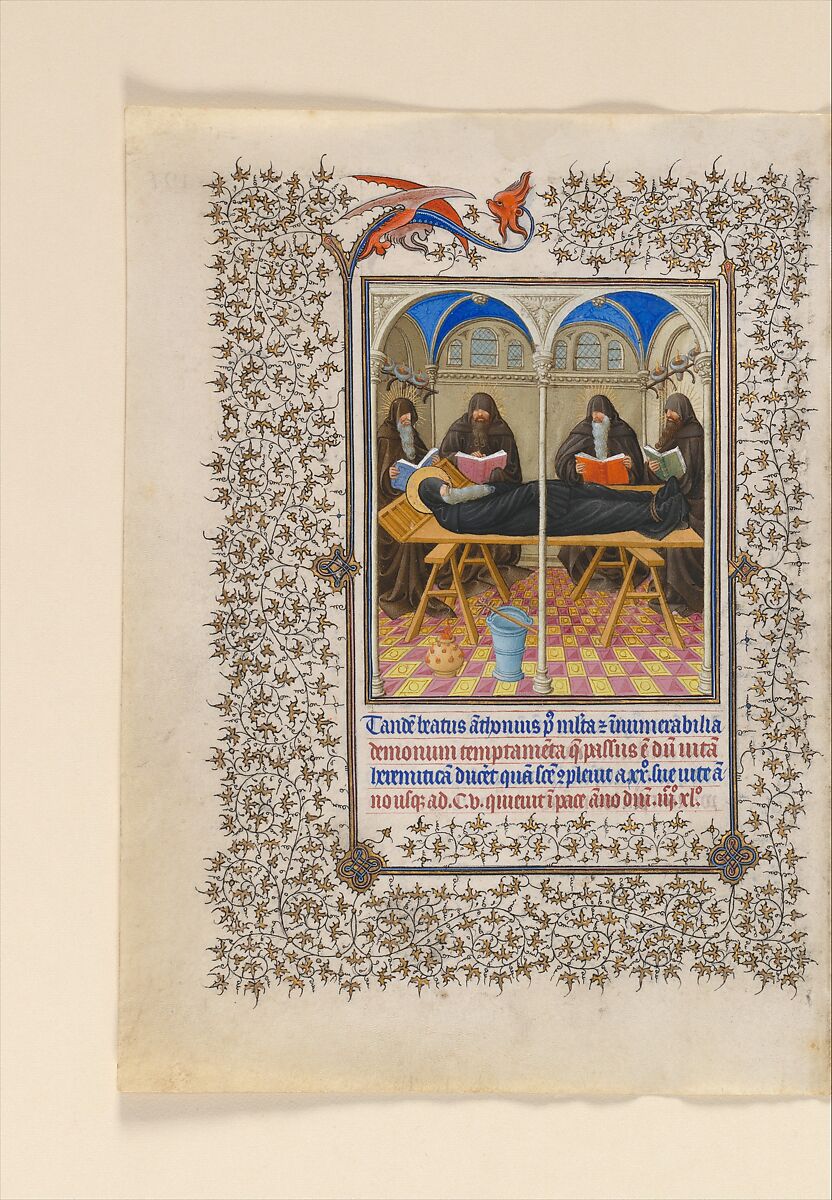 Tandē beatus āthonius p9 ml'ta ⁊ īnumerabilia
demonum temptamēta q̄ passus ē dū uitā
heremiticā duceret quā scē ɔpleuit a.xxº. sue uite ā-
no usq; ad .C.v. quieuit ī pace āno dn̄i .iijº.xlº.